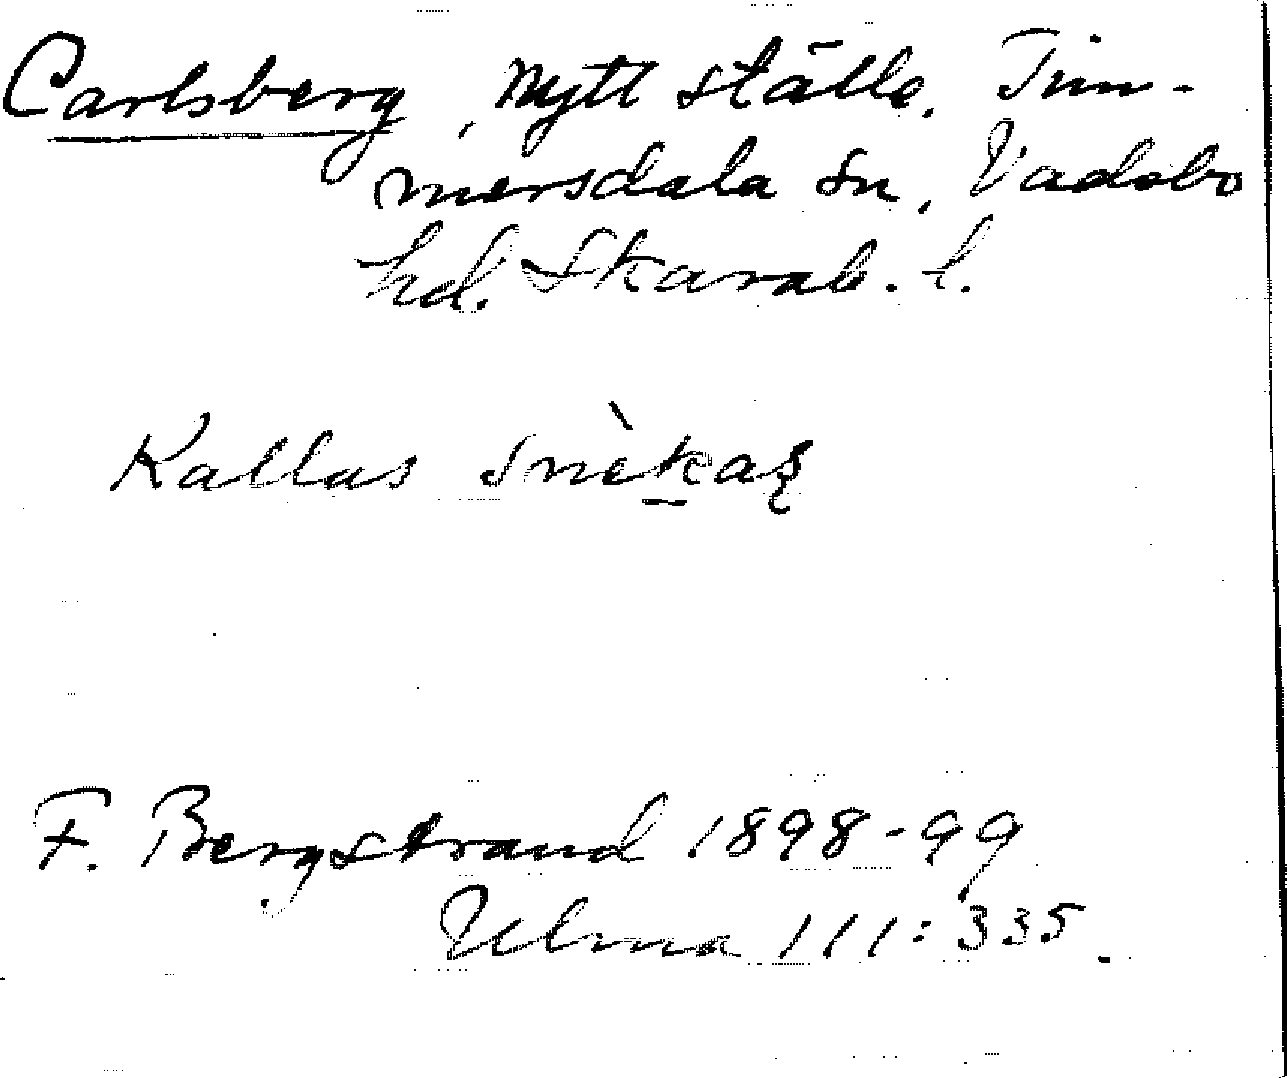 Carlsberg, Nytt ställe, Tim-
mersdala sn, Vadsbo
hd. Skarab. l.
Kallas
F. Bergstrand 1898-99
Ulma 111:335.